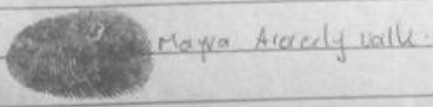 Mayra Aracely valle.